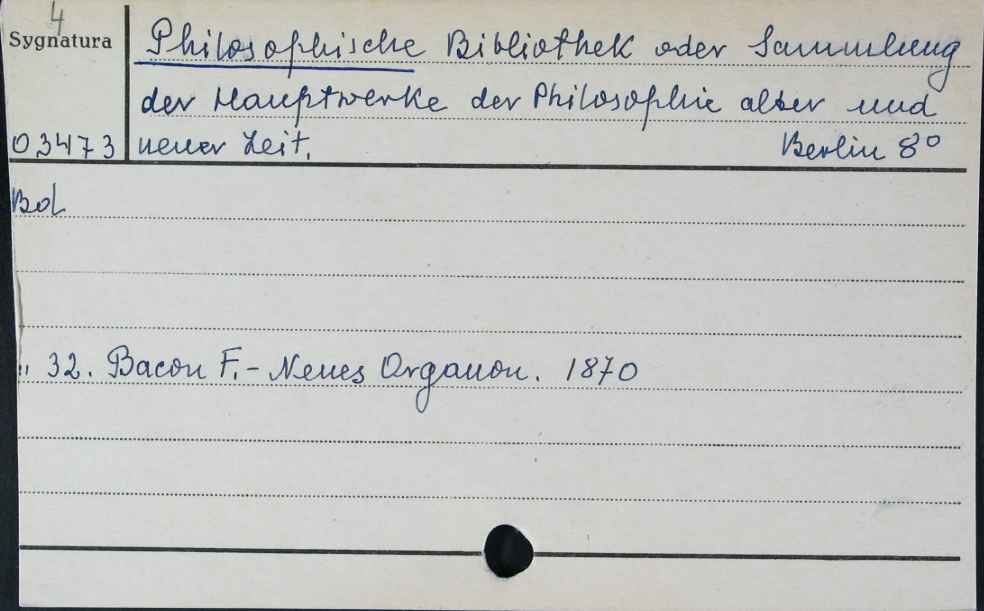 4
Sygnatura
Philosophische Bibliothek oder Sammlung
der Hauptwerke der Philosophie alter und
03473 neuer Zeit. Berlin 8°
Bd
" 32. Bacon F. - Neues Organon. 1870